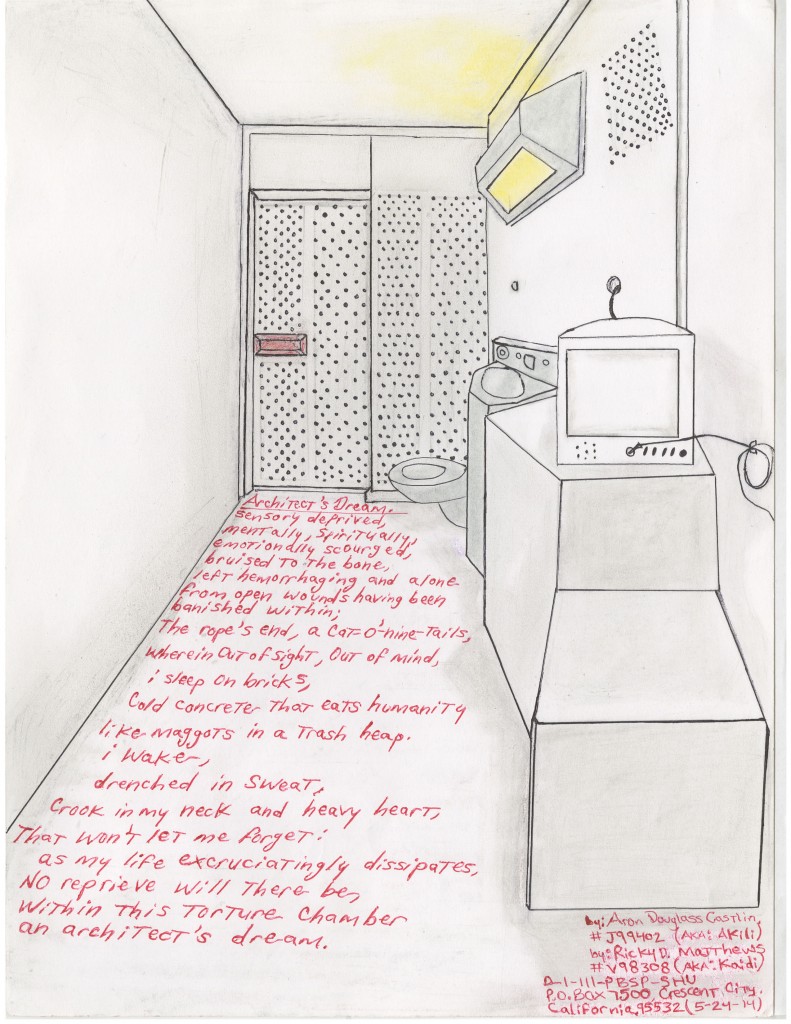 Architect's Dream.
sensory deprived,
mentally, spiritually,
emotionally scourged,
bruised to the bone,
left hemorrhaging and alone
from open wounds having been
banished within;
The rope's end, a cat-o'-nine-tails,
wherein out of sight, out of mind,
i sleep on bricks,
Cold concrete that eats humanity
like maggots in a trash heap.
i wake,
drenched in sweat,
Crook in my neck and heavy heart,
That won't let me forget:
as my life excruciatingly dissipates,
No reprieve will there be,
Within this torture chamber
an architect's dream.
by: Aron Douglass Costlin,
# J99402 (AKA: Akili)
by: Ricky D. Matthews
# V98308 (AKA: Kaidi)
D-1-111-PBSP-SHU
P.O. Box 7500, Crescent City.
California, 95532 (5-24-14)